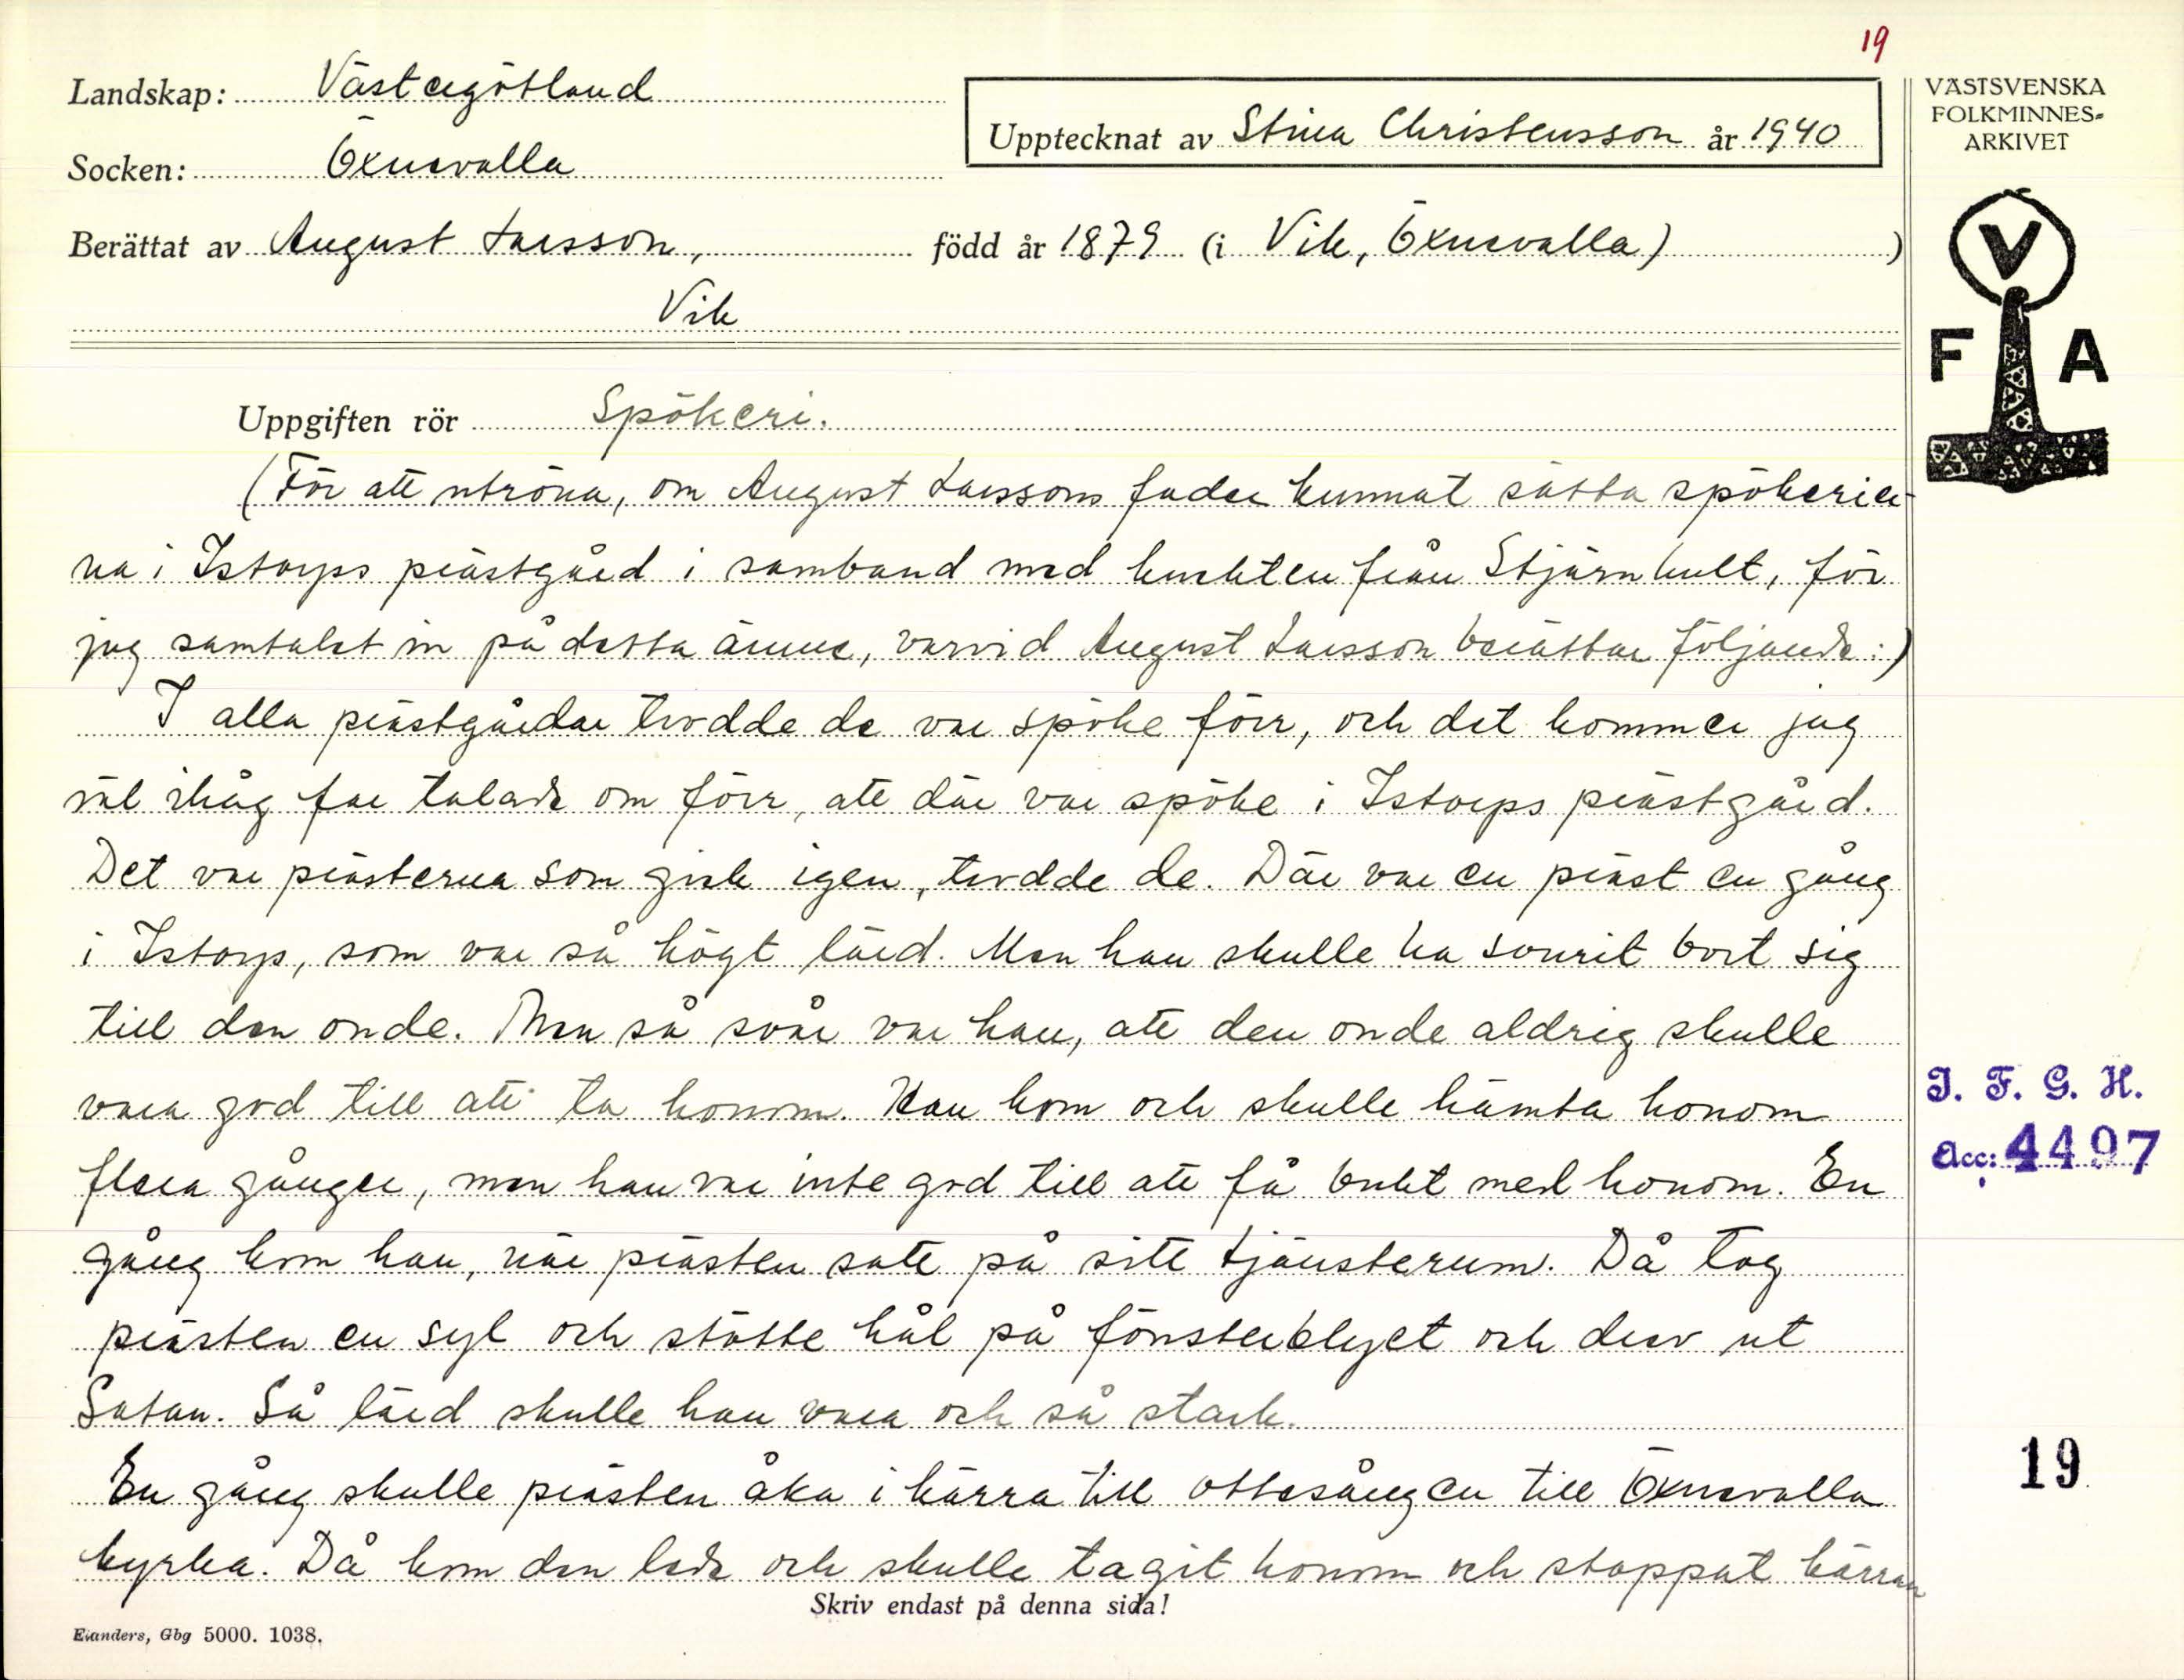 19
Landskap: Västergötland
Socken: Öxnevalla
Upptecknat av Stina Christensson år 1940
Berättat av August Larsson, född år 1879 (i Vik, Öxnevalla) )
Vik
VÄSTSVENSKA
FOLKMINNES-
ARKIVET
V
F A
Uppgiften rör Spökeri.
(För att utröna, om August Larssons fader kunnat sätta spökerier-
na i Istorps prästgård i samband med knekten från Stjärnhult, för
jag samtalet in på detta ämne, varvid August Larsson berättar följande:)
I alla prästgårdar trodde de var spöke förr, och det kommer jag
väl ihåg far talade om förr, att där var spöke i Istorps prästgård.
Det var prästerna som gick igen, trodde de. Där var en präst en gång
i Istorp, som var så högt lärd. Men han skulle ha svurit bort sig
till den onde. Men så svår var han, att den onde aldrig skulle
vara god till att ta honom. Han kom och skulle hämta honom
flera gånger, men han var inte god till att få bukt med honom. En
gång kom han, när prästen satt på sitt tjänsterum. Då tog
prästen en syl och stötte hål på fönsterblyet och drev ut
Satan. Så lärd skulle han vara och så stark.
En gång skulle prästen åka i kärra till ottesången till Öxnevalla
kyrka. Då kom den lede och skulle tagit honom och stoppat kärran
J. F. G. H.
Acc: 4497
19
Skriv endast på denna sida!
Elanders, Gbg 5000. 1038.